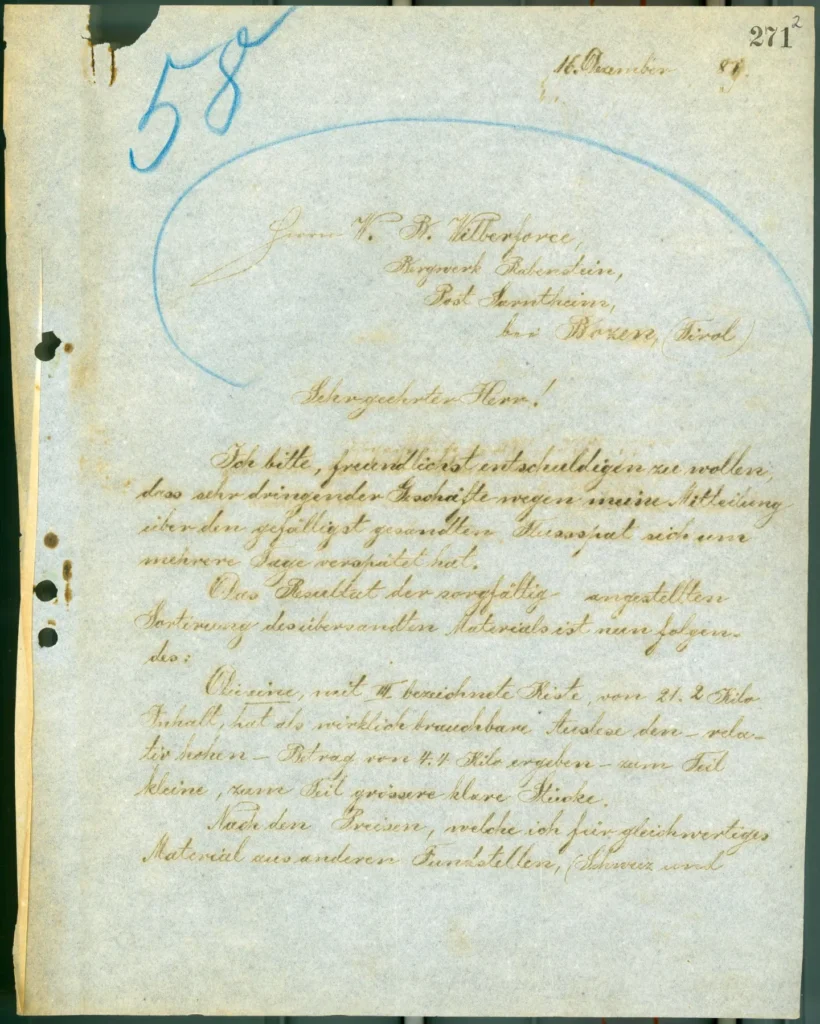 271²
58
16. Dezember 89.
Herrn W. W. Wilberforce,
Bergwerk Rabenstein,
Post Sarntheim,
bei Bozen, (Tirol)
Sehr geehrter Herr!
Ich bitte, freundlichst entschuldigen zu wollen,
dass sehr dringender Geschäfte wegen meine Mitteilung
über den gefälligst gesandten Flussspat sich um
mehrere Tage verspätet hat.
Das Resultat der sorgfältig angestellten
Sortirung des übersandten Materials ist nun folgen-
des:
Die eine, mit III bezeichnete Kiste, von 21.2 Kilo
Inhalt, hat als wirklich brauchbare Auslese den – rela-
tiv hohen – Betrag von 4.4 Kilo ergeben – zum Teil
kleine, zum Teil grössere klare Stücke.
Nach den Preisen, welche ich für gleichwertiges
Material aus anderen Fundstellen, (Schweiz und